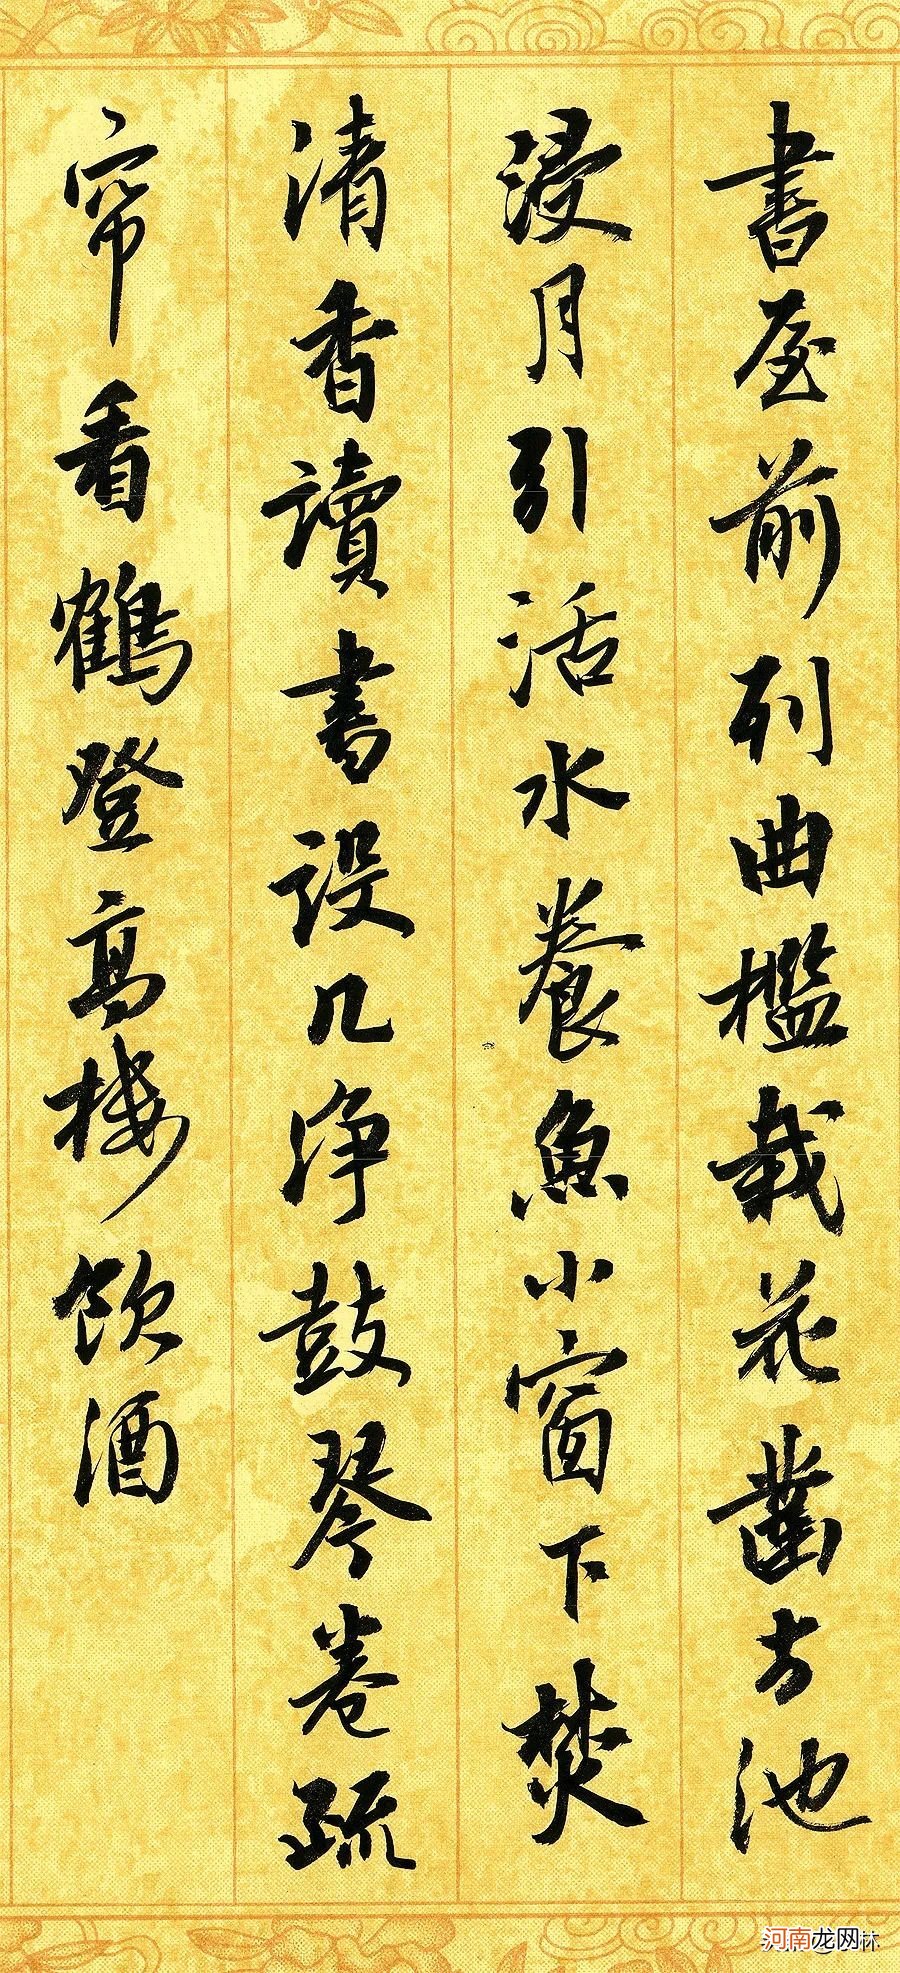 書屋前列曲檻栽花鑿方池
浸月引活水養魚小窗下焚
清香讀書設几净鼓琴卷疏
帘看鶴登高樓飲酒
河南龙网
林